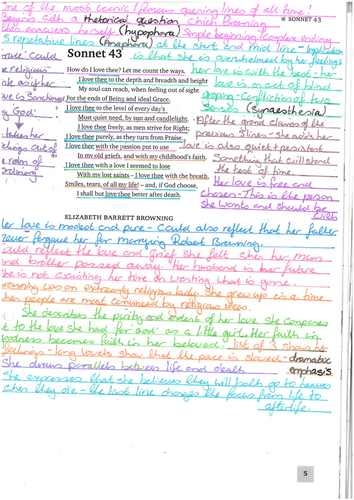 One of the most iconic / famous opening lines of all time!
Begins with a rhetorical question which Browning
SONNET 43
then answers herself (hypophora) Simple beginning, complex ending
5 repetative lines (Anaphora) at the start and mid line - implication
is that she is overwhelmed by her feelings
Sonnet 43
How do I love thee? Let me count the ways.
I love thee to the depth and breadth and height
My soul can reach, when feeling out of sight
For the ends of Being and ideal Grace.
I love thee to the level of every day's
Most quiet need, by sun and candlelight.
I love thee freely, as men strive for Right;
I love thee purely, as they turn from Praise.
I love thee with the passion put to use
In my old griefs, and with my childhood's faith.
I love thee with a love I seemed to lose
With my lost saints – I love thee with the breath,
Smiles, tears, of all my life! – and, if God choose,
I shall but love thee better after death.
ELIZABETH BARRETT BROWNING
her love is with the soul - her
love is an act of blind
Confliction of two
senses (Synaesthesia)
After the grand claims of the
previous lines - she adds her
love is also quiet + persistent
Something that will stand
the test of time.
Her love is free and
chosen - This is the person
she wants and should be
with
love is modest and pure - Could also reflect that her father
never forgave her for marrying Robert Browning.
could reflect the love and grief she felt when her mum
and brother passed away. her husband is her future
she is not wasting her time on wanting that is gone.
Browning was an extremely religious lady. She grew up in a time
when people are most convinced by religious ideas.
She describes the purity and extent of her love. She compares
it to the love she had for god as a little girl. Her faith in
godness becomes faith in her beloved. list of 3 shows her
feelings - long vowels show that the pace is slowed - dramatic
emphasis.
She draws parallels between life and death
She expresses that she believes they will both go to heaven
when they die - the last line changes the focus from life to
afterlife.
5